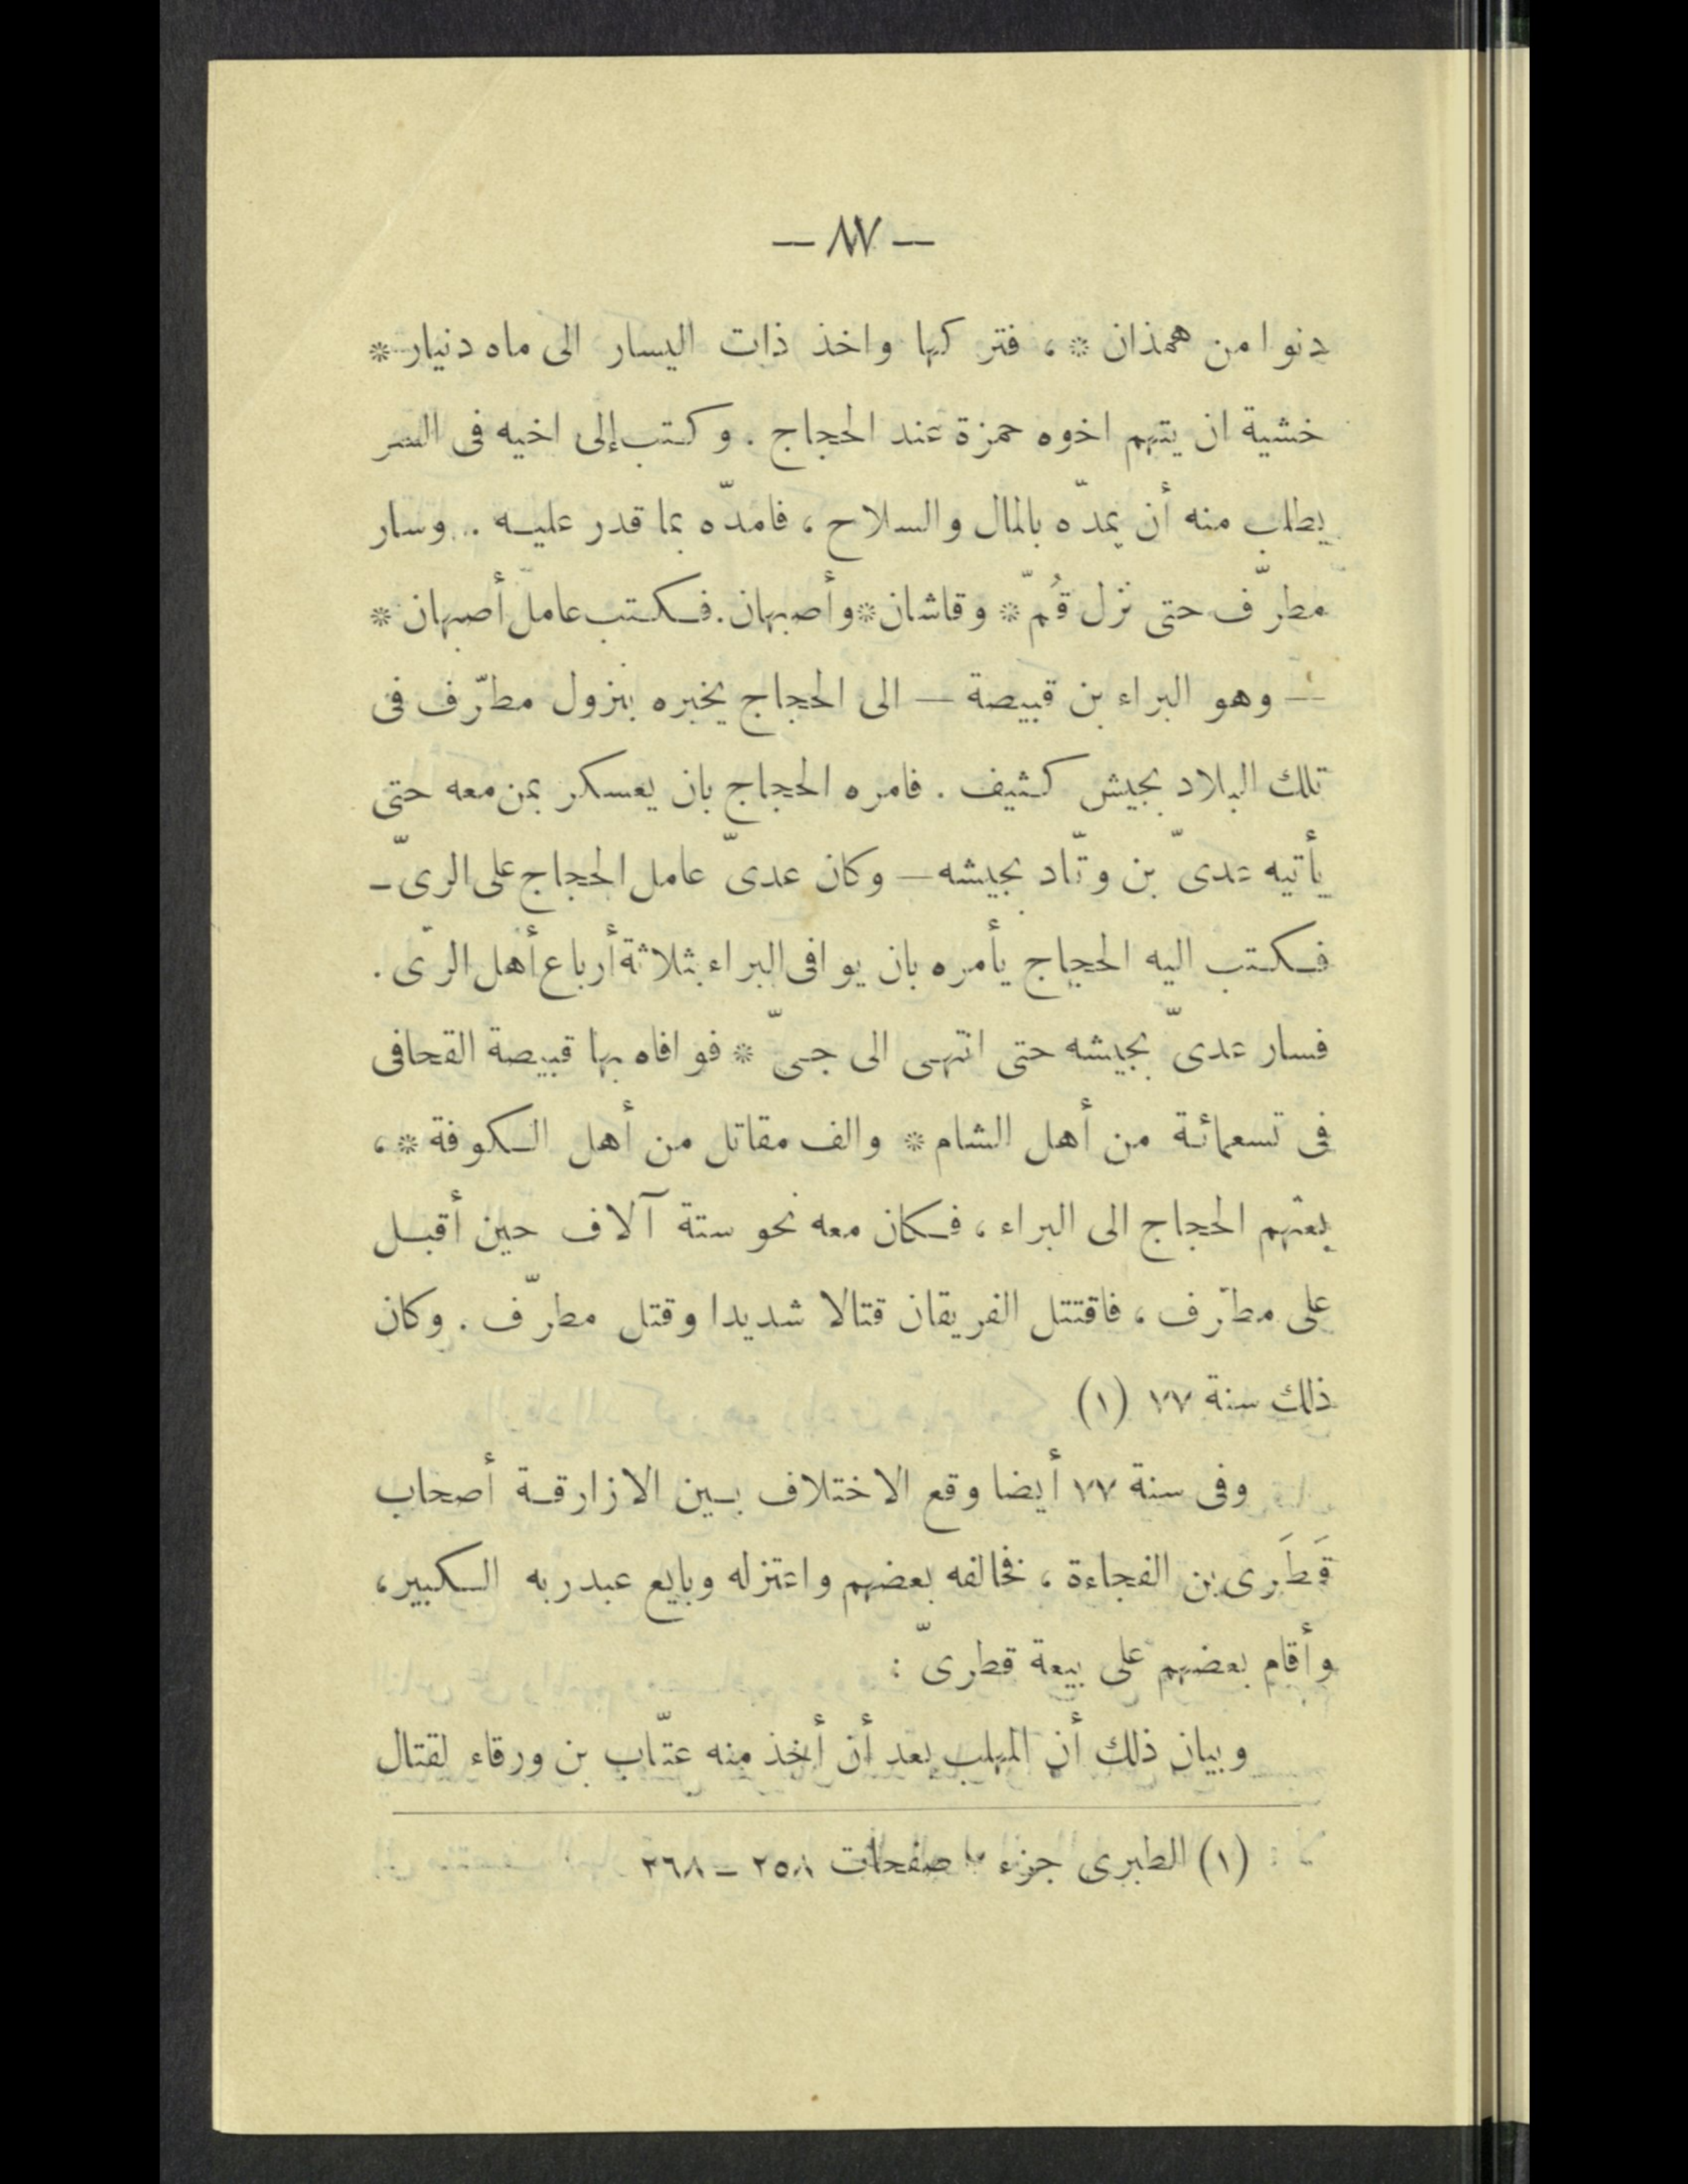 — ٨٧ —
دنوا من همذان * ، فتركها واخذ ذات اليسار الى ماه دنيار *
خشية ان يتهم اخوه حمزة عند الحجاج . وكتب إلى اخيه فى السر
يطلب منه أن يمدّه بالمال والسلاح ، فامدّه بما قدر عليه . وسار
مطرّف حتى نزل قُمّ * وقاشان * وأصبهان . فكتب عامل أصبهان *
— وهو البراء بن قبيصة — الى الحجاج يخبره بنزول مطرّف فى
تلك البلاد بجيش كثيف . فامره الحجاج بان يعسكر بمن معه حتى
يأتيه عدىّ بن وتّاد بجيشه — وكان عدىّ عامل الحجاج على الرىّ —
فكتب اليه الحجاج يأمره بان يوافى البراء بثلاثة أرباع أهل الرّى .
فسار عدىّ بجيشه حتى انتهى الى جىّ * فوافاه بها قبيصة القحافى
فى تسعمائة من أهل الشام * والف مقاتل من أهل الكوفة * ،
بعثهم الحجاج الى البراء ، فكان معه نحو ستة آلاف حين أقبل
على مطرّف ، فاقتتل الفريقان قتالا شديدا وقتل مطرّف . وكان
ذلك سنة ٧٧ (١)
وفى سنة ٧٧ أيضا وقع الاختلاف بين الازارقة أصحاب
قَطَرى بن الفجاءة ، فخالفه بعضهم واعتزله وبايع عبد ربه الكبير ،
وأقام بعضهم على بيعة قطرىّ :
وبيان ذلك أن المهلب بعد أن أخذ منه عتّاب بن ورقاء لقتال
(١) الطبرى جزء صفحات ٢٥٨ – ٢٦٨